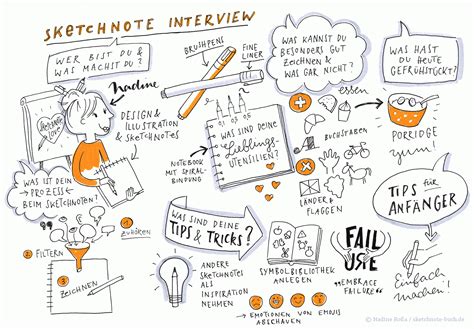 SKETCHNOTE INTERVIEW
WER BIST DU &
WAS MACHST DU?
Nadine
DESIGN &
ILLUSTRATION
& SKETCHNOTES
sketchnote
love
BRUSHPENS
FINE
LINER
WAS SIND DEINE
Lieblings-
UTENSILIEN?
NOTEBOOK
MIT SPIRAL-
BINDUNG
WAS KANNST DU
BESONDERS GUT
ZEICHNEN &
WAS GAR NICHT?
essen
BUCHSTABEN
LÄNDER &
FLAGGEN
WAS HAST
DU HEUTE
GEFRÜHSTÜCKT?
PORRIDGE
yum!
WAS IST DEIN
PROZESS
BEIM SKETCHNOTEN?
1
ZUHÖREN
2 FILTERN
3
ZEICHNEN
WAS SIND DEINE
TIPS & TRICKS?
ANDERE
SKETCHNOTES
ALS
INSPIRATION
NEHMEN
SYMBOLBIBLIOTHEK
ANLEGEN
EMOTIONEN VON EMOJIS
ABSCHAUEN
FAIL
URE
"EMBRACE
FAILURE"
TIPS für
ANFÄNGER
Einfach
machen!
© Nadine Roßa / sketchnote-buch.de